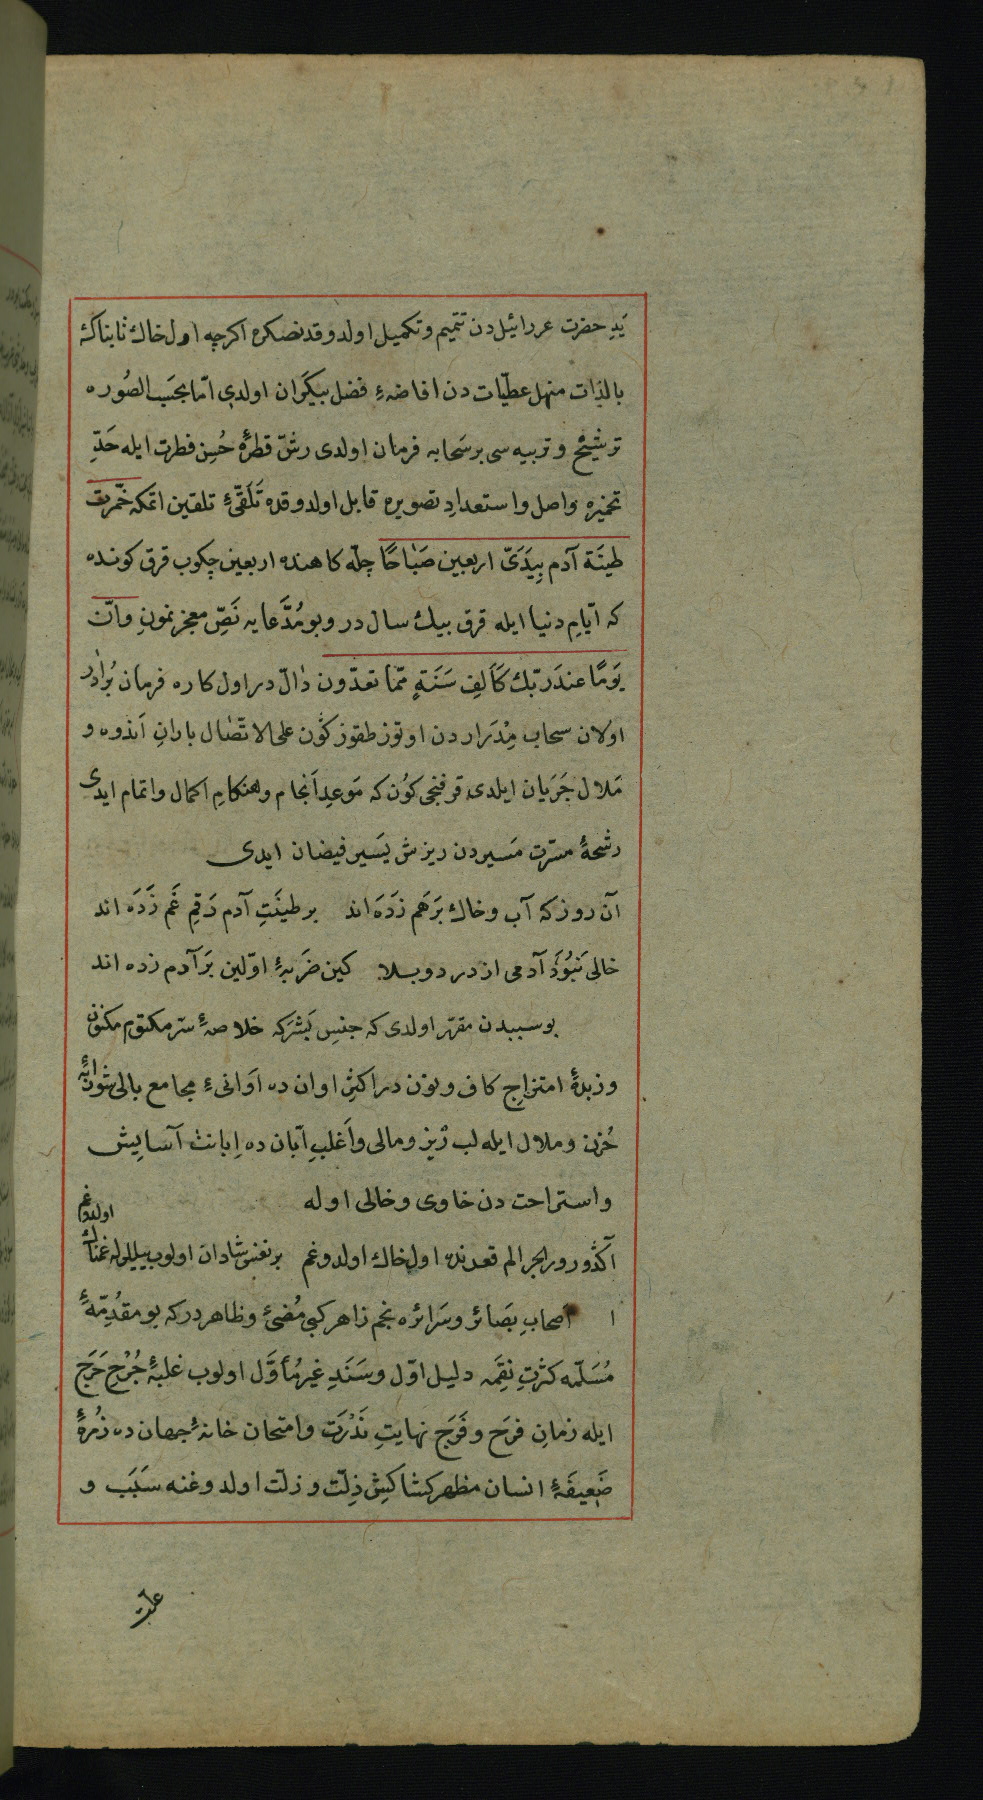 یَدِ حضرت عزرائیل دن تتمیم و تکمیل اولدوقدنصکره اکرچه اول خاك تابناكهٔ
بالذات منهل عطیّات دن افاضهٔ فضل بیکران اولدی امّا بحسَب الصُوره
ترشیّح و تربیه سی بر سَحابه فرمان اولدی رشّ قطرهٔ حُسن فطرت ایله حَدِّ
تخمیره واصل و استعدادِ تصویره قابل اولدوقده تَلَقّیٔ تلقین اتمکه خمّرت
طینَة آدم بِیَدَیّ اربعین صَبَاحًا چلّه کاهنده اربعین چکوب قرق کونده
که ایّامِ دنیا ایله قرق بیك سال در و بو مُدَّعایه نَصِّ معجز نمونِ وانّ
یَومًا عندَ ربّك كَاَلفِ سَنَةٍ ممّا تعدّون دٰالّ در اول کاره فرمان بُرادر
اولان سحاب مِدْرَار دن اوتوز طقوز کون علی الاتّصال بارانِ اَندوه و
مَلال جَرَیان ایلدی قرقنجی کوُن که مَوعدِ اَنجام و هنکامِ اکمال و اتمام ایدی
رشحهٔ مسرّت مَسیردن ریزش یَسیر فیضان ایدی
آن روز که آب و خاك بَرهَم زَدَه اند بر طینَتِ آدم رَقمِ غَم زَدَه اند
خالی نَبُوَد آدمی از درد و بلا کین ضَربهٔ اوّلین بَر آدم زده اند
بو سببدن مقرّر اولدی که جنسِ بَشَرکه خلاصهٔ سرّ مکتوم مکنون
و زبدهٔ امتزاجِ کاف و نون در اکثرِ اوان ده اَوانیٔ مجامع بالی شوائبهٔ
حُزن و ملال ایله لب رَیز و مالی و اَغلبِ آبان ده اِبانت آسایِش
و استراحت دن خاوی و خالی اوله
اولدوغم
آکدُور ورالجر الم قعدنده اول خاك اولدوغم بر نفس شادان اولوب بیللوله غمناك
ا اَصحابِ بَصائر و سَرائره نجم زاهر کبی مُضیٔ و ظاهر در که بو مقدّمهٔ
مُسَلّمه کثرتِ نِقَمه دلیل اوّل و سَنَدِ غیر مُأوَّل اولوب غلبهٔ جُرْحِ حَرَج
ایله زمانِ فرَح و فَرَج نهایتِ نَدْرَت و امتحان خانهٔ جهان ده زُمرهٔ
ضَعیفهٔ انسان مظهر کشاکشِ ذِلّت و زلّت اولدوغنه سَبَب و
علّت